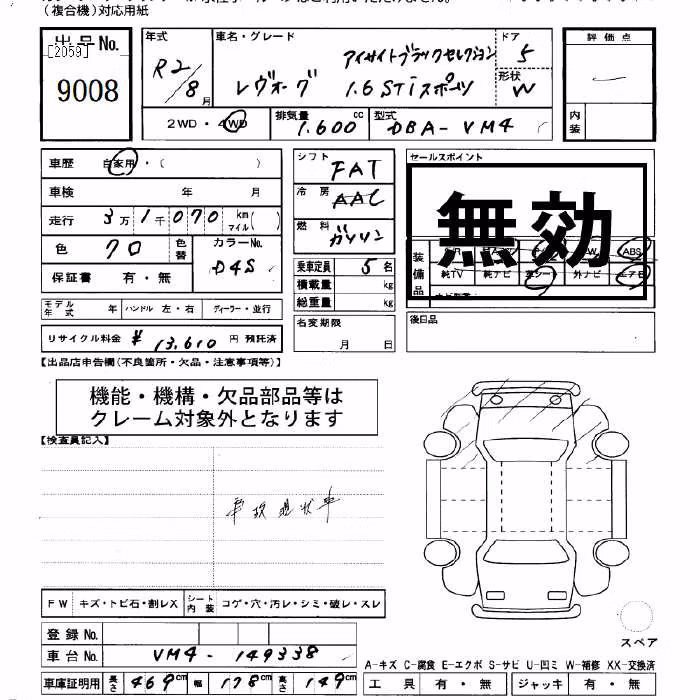 (複合機)対応用紙
出品No.
[2059]
9008
年式
R2/8月
車名・グレード
アイサイトブラックセレクション
レヴォーグ 1.6 STiスポーツ
ドア
5
形状
W
評価点
内装
2WD・4WD
排気量
1.600cc
型式
DBA-VM4
車歴 自家用・( )
車検 年 月
走行 3万1千070 km マイル( )
色 クロ
色替
カラーNo.
D4S
保証書 有・無
モデル年式 年 ハンドル 左・右 ディーラー・並行
リサイクル料金 ¥13,610 円 預託済
シフト FAT
冷房 AAC
燃料 ガソリン
乗車定員 5名
積載量 kg
総重量 kg
名変期限
月 日
セールスポイント
無効
装備品
ABS
純TV 純ナビ 革シート 外ナビ エアB
後日品
【出品店申告欄(不良箇所・欠品・注意事項等)】
機能・機構・欠品部品等は
クレーム対象外となります
【検査員記入】
事故現状車
FW キズ・トビ石・割レX シート内装 コゲ・穴・汚レ・シミ・破レ・スレ
登録No.
車台No. VM4-149338
車庫証明用 長さ 469cm 幅 178cm 高さ 149cm
スペア
A-キズ C-腐食 E-エクボ S-サビ U-凹ミ W-補修 XX-交換済
工具 有・無 ジャッキ 有・無